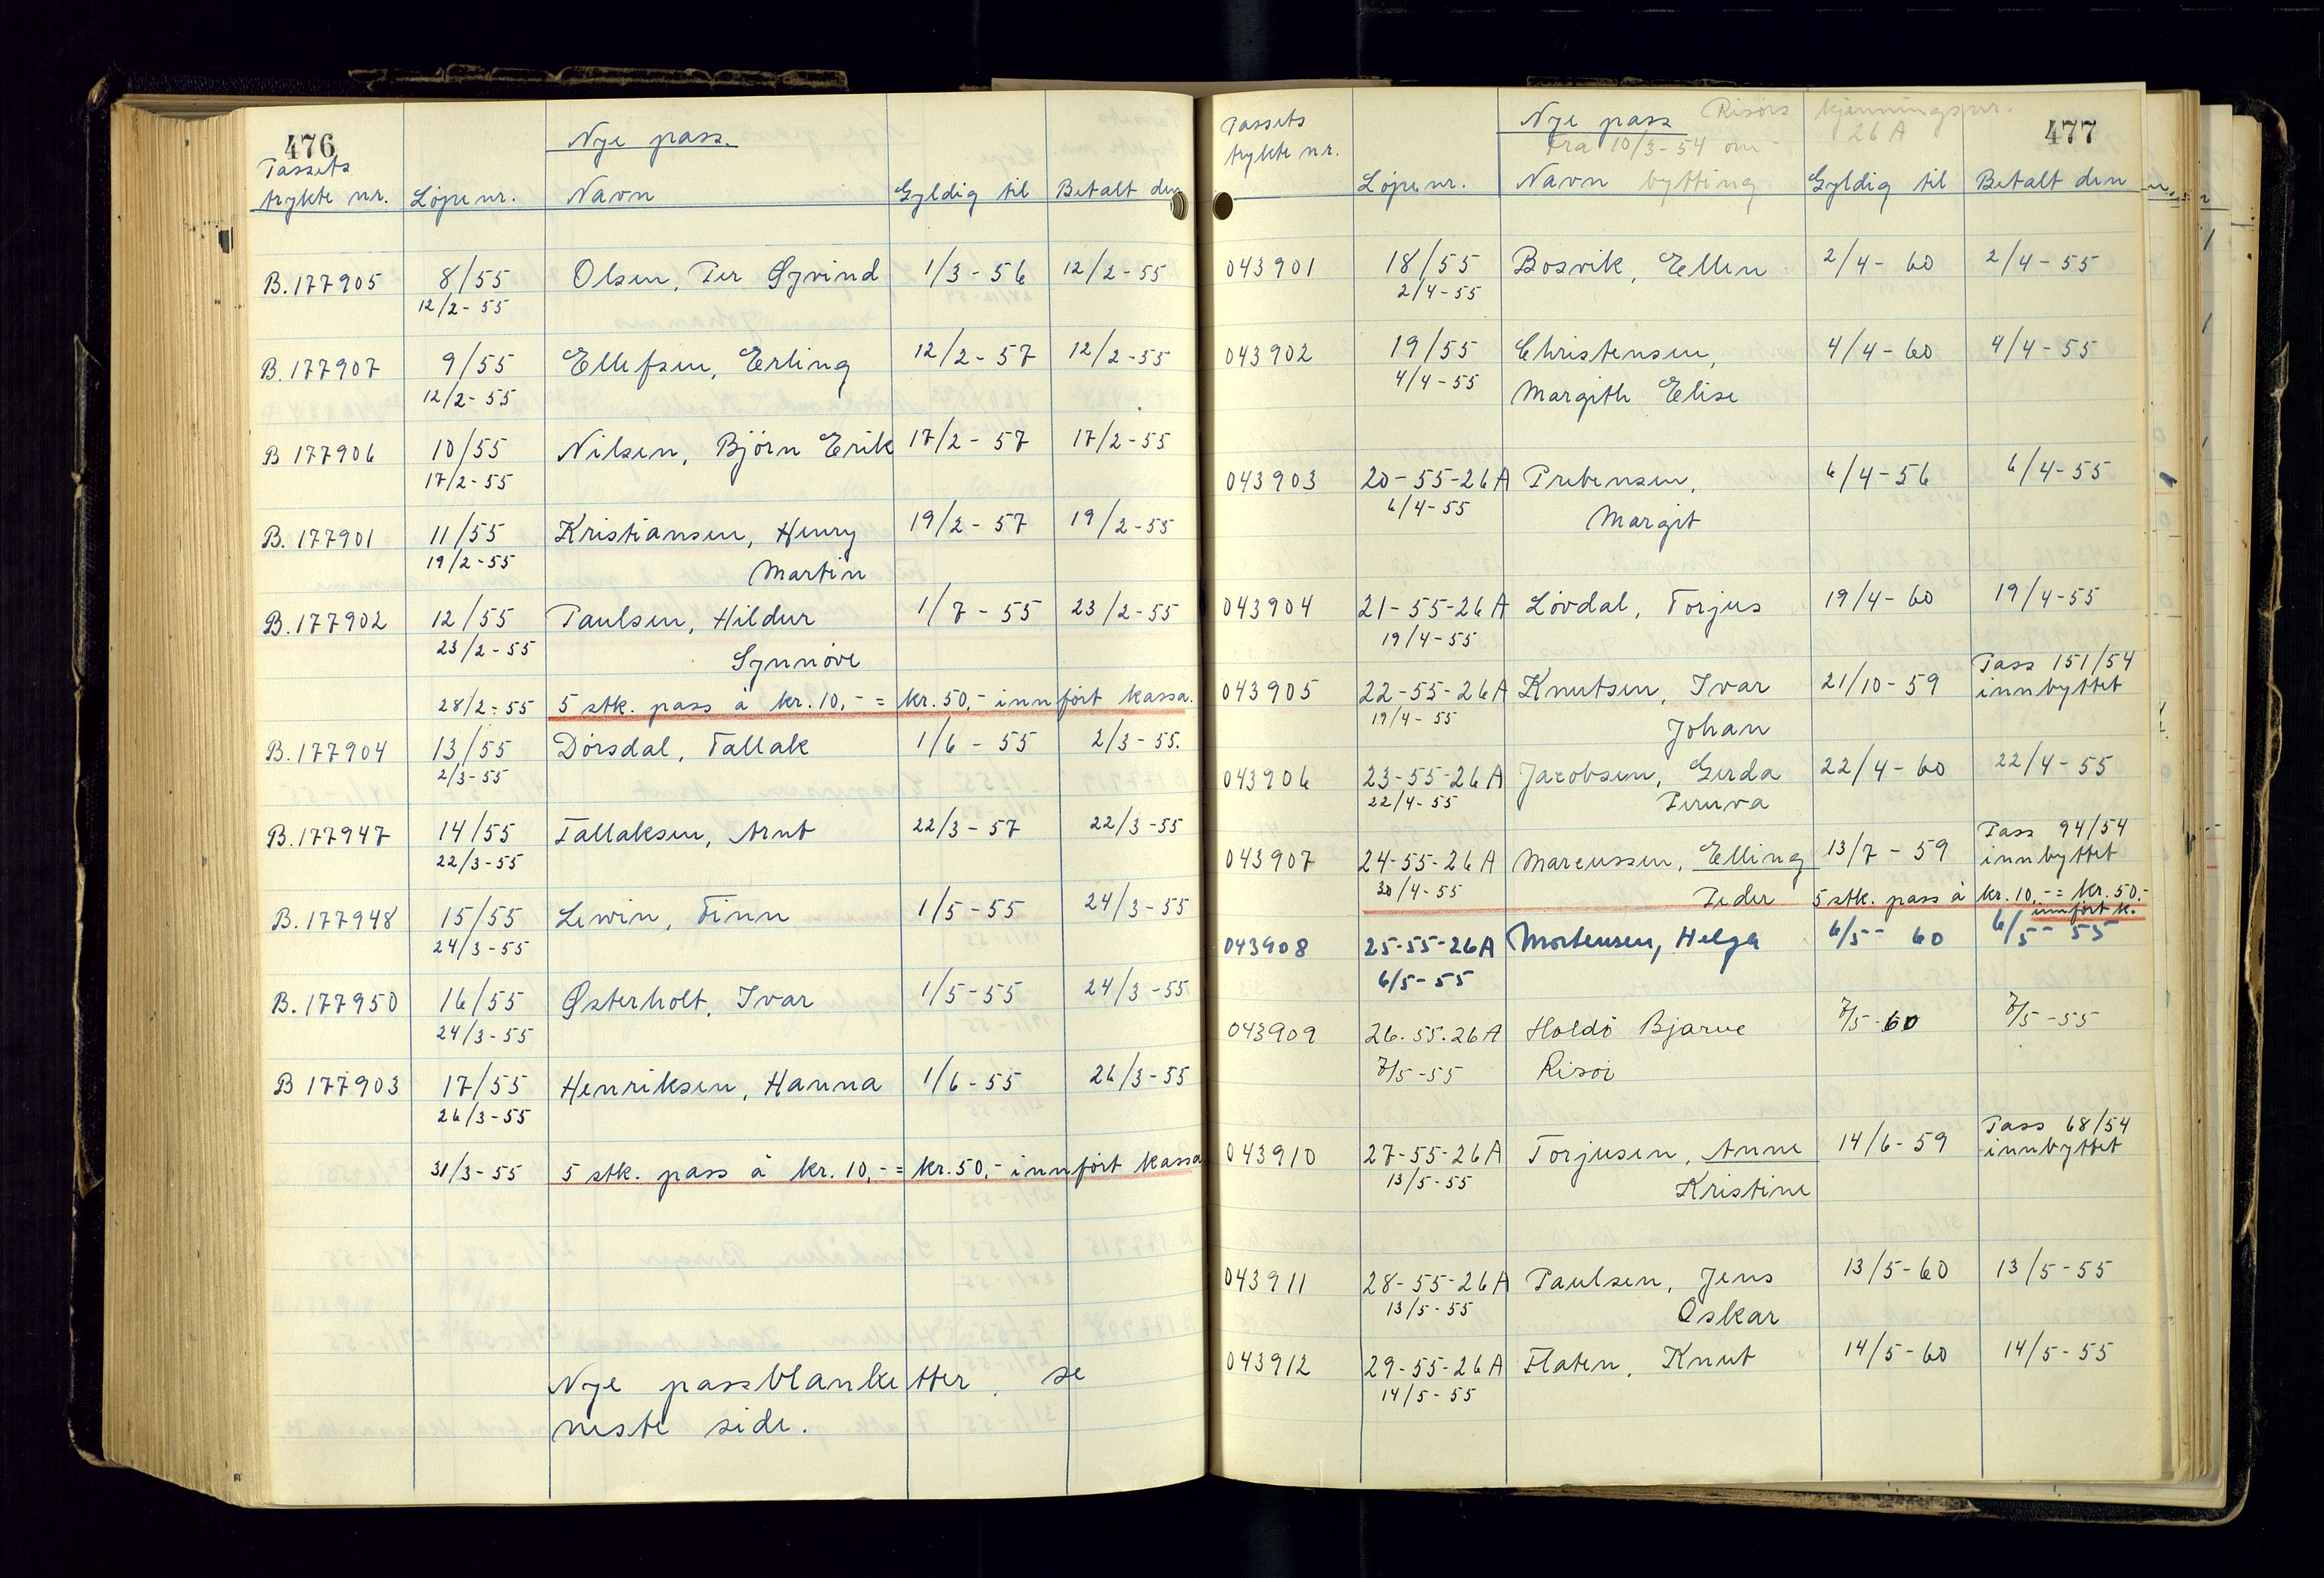 476
Nye pass.
Passets
trykte nr. Löpe nr. Navn Gyldig til Betalt den
B. 177905 8/55 Olsen, Per Øyvind 1/3 - 56 12/2 - 55
12/2 - 55
B. 177907 9/55 Ellefsen, Erling 12/2 - 57 12/2 - 55
12/2 - 55
B 177906 10/55 Nilsen, Björn Erik 17/2 - 57 17/2 - 55
17/2 - 55
B. 177901 11/55 Kristiansen, Henry 19/2 - 57 19/2 - 55
19/2 - 55 Martin
B. 177902 12/55 Paulsen, Hildur 1/7 - 55 23/2 - 55
23/2 - 55 Synnöve
28/2 - 55 5 stk. pass à kr. 10,- = kr. 50,- innfört kassa.
B. 177904 13/55 Dörsdal, Tallak 1/6 - 55 2/3 - 55.
2/3 - 55
B. 177947 14/55 Tallaksen, Arnt 22/3 - 57 22/3 - 55
22/3 - 55
B. 177948 15/55 Lewin, Finn 1/5 - 55 24/3 - 55
24/3 - 55
B. 177950 16/55 Østerholt, Ivar 1/5 - 55 24/3 - 55
24/3 - 55
B 177903 17/55 Henriksen, Hanna 1/6 - 55 26/3 - 55
26/3 - 55
31/3 - 55 5 stk. pass à kr. 10,- = kr. 50,- innfört kassa
Nye passblanketter, se
neste side.
Passets Nye pass Risörs kjenningsnr. 477
trykte nr. Fra 10/3 - 54 om- 26 A
Löpe nr. Navn bytting Gyldig til Betalt den
043901 18/55 Bosvik, Ellen 2/4 - 60 2/4 - 55
2/4 - 55
043902 19/55 Christensen, 4/4 - 60 4/4 - 55
4/4 - 55 Margith Elise
043903 20-55-26A Prebensen, 6/4 - 56 6/4 - 55
6/4 - 55 Margit
043904 21-55-26A Lövdal, Torjus 19/4 - 60 19/4 - 55
19/4 - 55
043905 22-55-26A Knutsen, Ivar 21/10 - 59 Pass 151/54
19/4 - 55 Johan innbyttet
043906 23-55-26A Jacobsen, Gerda 22/4 - 60 22/4 - 55
22/4 - 55 Peruva
043907 24-55-26A Marcussen, Elling 13/7 - 59 Pass 94/54
innbyttet
30/4 - 55 Peder 5 stk. pass à kr. 10,- = kr. 50,-
innfört k.
043908 25-55-26A Mortensen, Helga 6/5 - 60 6/5 - 55
6/5 - 55
043909 26.55.26A Holdö Bjarne 7/5 - 60 7/5 - 55
7/5 - 55 Risöi
043910 27-55-26A Torjusen, Anne 14/6 - 59 Pass 68/54
13/5 - 55 Kristine innbyttet
043911 28-55-26A Paulsen, Jens 13/5 - 60 13/5 - 55
13/5 - 55 Oskar
043912 29-55-26A Flaten, Knut 14/5 - 60 14/5 - 55
14/5 - 55